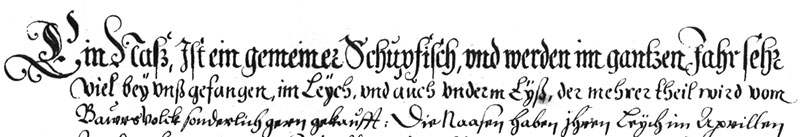 Ein Naß, Ist ein gemeiner Schupfisch, vnd werden im gantzen Jahr sehr
viel bey vnß gefangen, im Leÿch, vnd auch vnderm Eÿß, der mehrer theil wird vom
Bauwrsvolck sonderlich gern gekaufft: Die Naasen haben jhren Leÿch im Aprillen